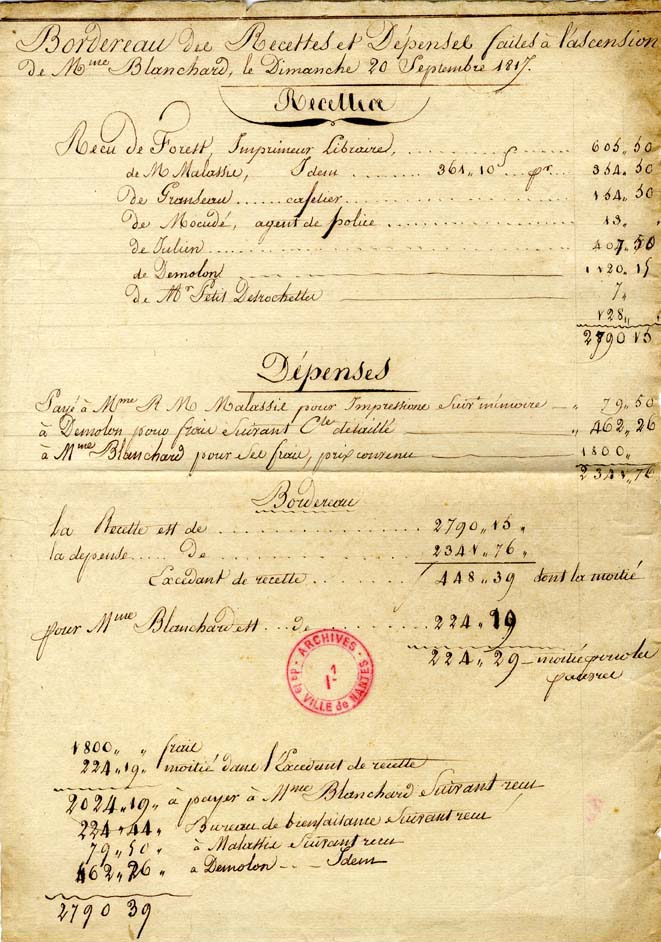 Bordereau des Recettes et Dépenses faites à l'ascension
de Mme Blanchard, le Dimanche 20 Septembre 1817.
Recettes
Recu de Forest, Imprimeur Libraire, 605,, 50
de M Malassie, Idem 361,, 10s pr 354,, 50
de Granseau cafetier 154,, 50
de Mocudé, agent de police 13,, "
de Julien 407,, 50
de Demolon 1120,, 15
de Mr Petit Desrochettes 7,,
128,,
2790 15
Dépenses
Payé à Mme R M Malassie pour Impressions Suivt mémoire " 79,, 50
à Demolon pour frais suivant Cte détaillé " 462,, 26
à Mme Blanchard pour ses frais, prix convenu 1800,,
2341,, 76
Bordereau
La Recette est de 2790,, 15,,
la depense de 2341,, 76,,
Excédant de recette 448,, 39 dont la moitié
pour Mme Blanchard est de 224,, 19
224,, 29 - moitié pour les
pauvres
ARCHIVES de la VILLE de NANTES
I1
1800,, " frais
224,, 19,, moitié dans l'Excédant de recette
2024,, 19,, à payer à Mme Blanchard Suivant recu
224,, 44,, Bureau de bienfaisance Suivant recu
79,, 50,, à Malassie Suivant recu
462,, 26,, à Demolon Idem
2790 39